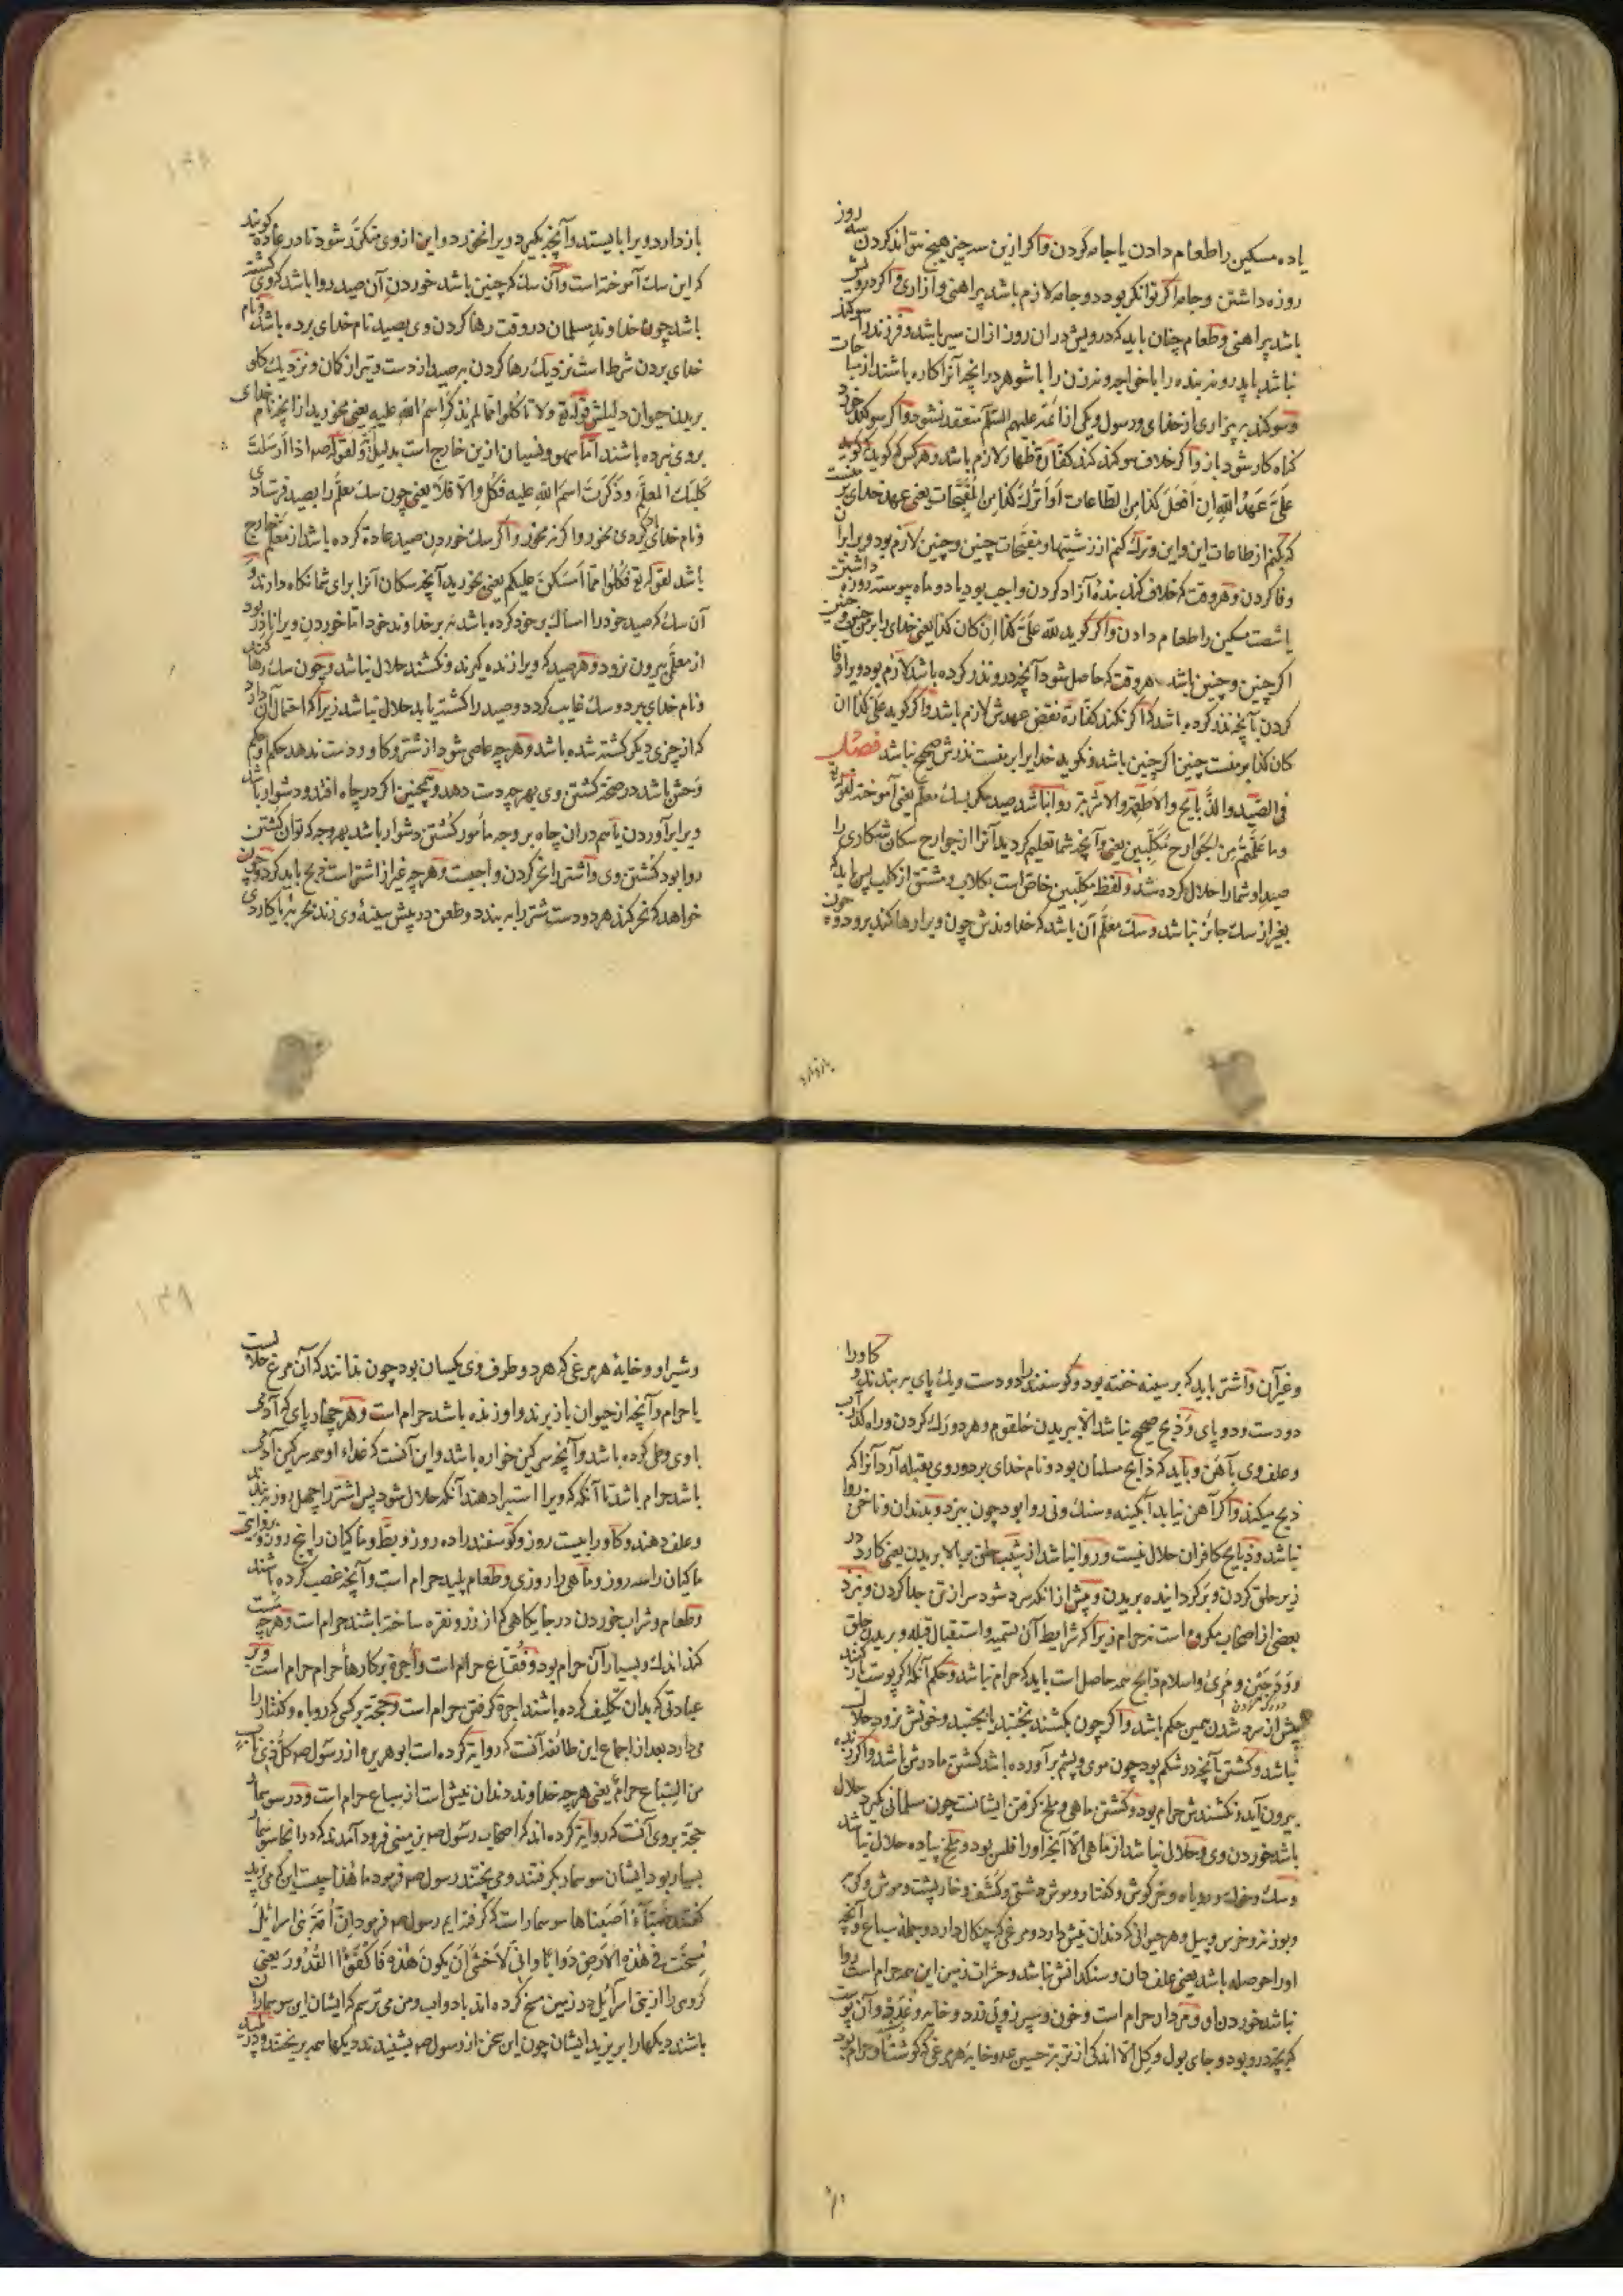 یا ده مسکین را طعام دادن یا جامه کردن و اگر ازین سه چیز هیچ نتواند کردن سه روز
روزه داشتن و جامه اگر توانگر بود دو جامه لازم باشد پیراهنی و ازاری و اگر درویش
باشد پیراهنی و طعام چنان باید که درویش در آن روز از آن سیر باشد و فرزند را سوکند
نباشد با پدر و نه بنده را با خواجه و نه زن را با شوهر در آنچه آنرا کاره باشند از مباحات
و سوکند به بیزاری از خدای و رسول و یکی از ائمه علیهم السّلم منعقد نشود و اگر سوکند خورد
کناه کار شود باز و اگر خلاف سوکند کند کفّارة ظهار لازم باشد و هر کس که کوید
علیَّ عَهدُ اللّهِ اِن اَفعَلَ کذا مِن الطاعات اَو اَترُکَ کذا مِن المُقبَّحات یعنی عهد خدای بر منست
که بکنم از طاعات این و این و ترک کنم از زشتیها و مقبّحات چنین و چنین لازم بود ویرا بر آن
وفا کردن و هر وقت که خلاف کند بندهٔ آزاد کردن واجب بود یا دو ماه پیوسته روزه داشتن
یا شصت مسکین را طعام دادن و اگر کوید للّه علیَّ کذا اِن کان کذا یعنی خدای را بر من چنین و چنین
اگر چنین و چنین باشد هر وقت که حاصل شود آنچه درو نذر کرده باشد لازم بود ویرا وفا
کردن بآنچه نذر کرده باشد و اگر نکند کفّارة نقض عهدش لازم باشد و اگر کوید علیّ کذا ان
کان کذا بر منست چنین اگر چنین باشد و نکوید خدایرا بر منست نذرش صحیح نباشد فصل
فی الصَّید والذَّبایح والاَطعِمَة والاشربة روا نباشد صید مکر بسک معلَّم یعنی آموخته لقوله
وما عَلَّمتُم مِن الجَوارح مُکلِّبین یعنی و آنچه شما تعلیم کردید آنرا از جوارح سکان شکاری را
صید او شما را حلال کرده شد و لفظ مکلّبین خاصّ است بکلاب و مشتق از کلب پس باید که
بغیر از سک جائز نباشد و سک معلَّم آن باشد که خداوندش چون ویرا رها کند برود و چون
بازدارد
باز دارد ویرا بایستد و آنچه بگیرد ویرا نخورد و این از وی متکرّر شود تا در عاده کویند
که این سک آموخته است و آن سک که چنین باشد خوردن آن صید روا باشد که وی کشته
باشد چون خداوند مسلمان در وقت رها کردن وی بصید نام خدای برده باشد و نام
خدای بردن شرط است نزدیک رها کردن بر صید از دست و تیر از کمان و نزدیک کلو
بریدن حیوان دلیلش قوله تع ولا تاکلوا ممّا لم یذکر اسم اللّه علیه یعنی مخورید از آنچه نام خدای
بروی نبرده باشند امّا سهو و نسیان ازین خارج است بدلیل و لقوله صم اذا اَرسَلتَ
کَلبَکَ المعلَّم و ذَکَرتَ اسمَ اللّهِ علیه فَکُل والّا فلا یعنی چون سک معلَّم را بصید فرستادی
و نام خدای یاد کردی بخور و اگر نه مخور و اگر سک خوردن صید عادة کرده باشد از معلَّم خارج
باشد لقوله تع فَکُلوا ممّا اَمسَکنَ علیکم یعنی بخورید آنچه سکان آنرا برای شما نکاه دارند و
آن سک که صید خود را امساک بر خود کرده باشد نه بر خداوند خود امّا خوردن ویرا نادر بود
از معلَّمی بیرون نرود و هر صید که ویرا زنده کیرند و نکشند حلال نباشد و چون سک رها کردی
و نام خدای برد و سک غایب کردد و صید را کشته یابد حلال نباشد زیرا که احتمال آن دارد
که از چیزی دیکر کشته شده باشد و هر چه عاصی شود از شتر و کاو و دست ندهد حکم او حکم
وحش باشد در صحّة کشتن وی بهر چه دست دهد و همچنین اگر در چاه افتد و دشوار باشد
ویرا برآوردن یا هم در آن چاه بر وجه مأمور کُشتن دشوار باشد بهر وجه که توان کشتن
روا بود کشتن وی و اشتر را نحر کردن واجبست و هر چه غیر از اشتر است ذبح باید کرد و چون
خواهد که نحر کند هر دو دست شتر را ببندد و طعن در پیش سینهٔ وی زند بحربه یا کاردی
و غیر آن و اشتر باید که بر سینه خفته بود و کوسفند را دو دست و یک پای ببندند و کاو را
دو دست و دو پای و ذبح صحیح نباشد الّا ببریدن حُلقوم و هر دو رک کردن و راه کذر آب
و علف وی بآهن و باید که ذابح مسلمان بود و نام خدای برد و روی بقبله آرد آنرا که
ذبح میکند و اگر آهن نیابد آبکینه و سنک و نی روا بود چون ببرد و بدندان و ناخن روا
نباشد و ذبایح کافران حلال نیست و روا نباشد از شیب حلق ببالا بریدن یعنی کارد در
زیر حلق کردن و برکردانیده بریدن و پیش از آنکه سرد شود سر از تن جدا کردن و نزد
بعضی از اصحاب مکروه است نه حرام زیرا که شرایط آن بتسمیه و استقبال قبله و بریدن حلق
و وَدَجَین و مَریّ و اسلام ذابح همه حاصل است باید که حرام نباشد و حکم آنکه اگر پوست باز کنند
پیش از سرد شدن همین حکم باشد و اگر چون بکشند بجنبد یا نجنبد و خونش نرود حلال
نباشد و کشتن آنچه در شکم بود چون موی و پشم برآورده باشد کشتن مادرش باشد و اگر زنده
بیرون آید و نکشندش حرام بود و کشتن ماهی و ملخ کرفتن ایشانست چون مسلمانی کیرد حلال
باشد خوردن وی و حلال نباشد از ماهی الّا آنچه او را فلس بود و ملخ پیاده حلال نباشد
و سک و خوک و روباه و خرکوش و کفتار و موش دشتی و کشف و خارپشت و موش و کربه
و بوزنه و خرس و پیل و هر حیوانی که دندان نیش دارد و مرغی که چنکال دارد و جملهٔ سباع و آنچه
او را حوصله باشد یعنی علف دان و سنکدانش نباشد و حشرات زمین این همه حرام است روا
نباشد خوردن او و مردار حرام است و خون و سپرز و پی زرد و خایه و غُدَد و آن پوست
که بچه درو بود و جای بول و کِل الّا اندکی از تربة حسین ع و خایهٔ هر مرغی که کوشت او حرام بود
و شیر او و خایهٔ هر مرغی که هر دو طرف وی یکسان بود چون ندانند که آن مرغ حلالست
یا حرام و آنچه از حیوان باز برند و او زنده باشد حرام است و هر چهارپای که آدمی
با وی وطی کرده باشد و آنچه سرکین خواره باشد و این آنست که غذاء او همه سرکین آدمی
باشد حرام باشد تا آنکه که ویرا استبرا دهند آنکه حلال شود پس اشتر را چهل روز ببندند
و علف دهند و کاو را بیست روز و کوسفند را ده روز و بطّ و ماکیان را پنج روز و بروایتی
ماکیان را سه روز و ماهی را روزی و طعام پلید حرام است و آنچه غصب کرده باشند
و طعام و شراب خوردن در جایکاهی که از زر و نقره ساخته باشند حرام است و هر چه مست
کند اندک و بسیار آن حرام بود و فقّاع حرام است و اُجرة بر کارهاء حرام حرام است و بر
عبادتی که بدان تکلیف کرده باشند اجرة کرفتن حرام است و حجّة بر کسی که روباه و کفتار را
می دارد بعد از اجماع این طائفه آنست که روایة کرده است ابوهریره از رسول صم کلُّ ذی نابٍ
من السِّباع حرامٌ یعنی هر چه خداوند دندان نیش است از سباع حرام است و در سوسمار
حجّة بروی آنست که روایة کرده اند که اصحاب رسول صم بزمینی فرود آمدند که در آنجا سوسمار
بسیار بود ایشان سوسمار بکرفتند و می پختند رسول صم فرمود ما هذا چیست این که می پزید
کفتند ضِبابٌ اَصَبناها سوسمار است که کرفته ایم رسول صم فرمود اِنَّ اُمَّةً بنی اسرائیل
مُسِخَت فی هذه الارضِ دَوابّاً و انّی لَاَخشی اَن یکونَ هذه فَاکفَؤُا القُدُورَ یعنی
کروهی را از بنی اسرآئیل در زمین مسخ کرده اند با دوابّ و من می ترسم که ایشان این سوسماران
باشند دیکها را بریزید ایشان چون این سخن از رسول صم بشنیدند دیکها همه بریختند و